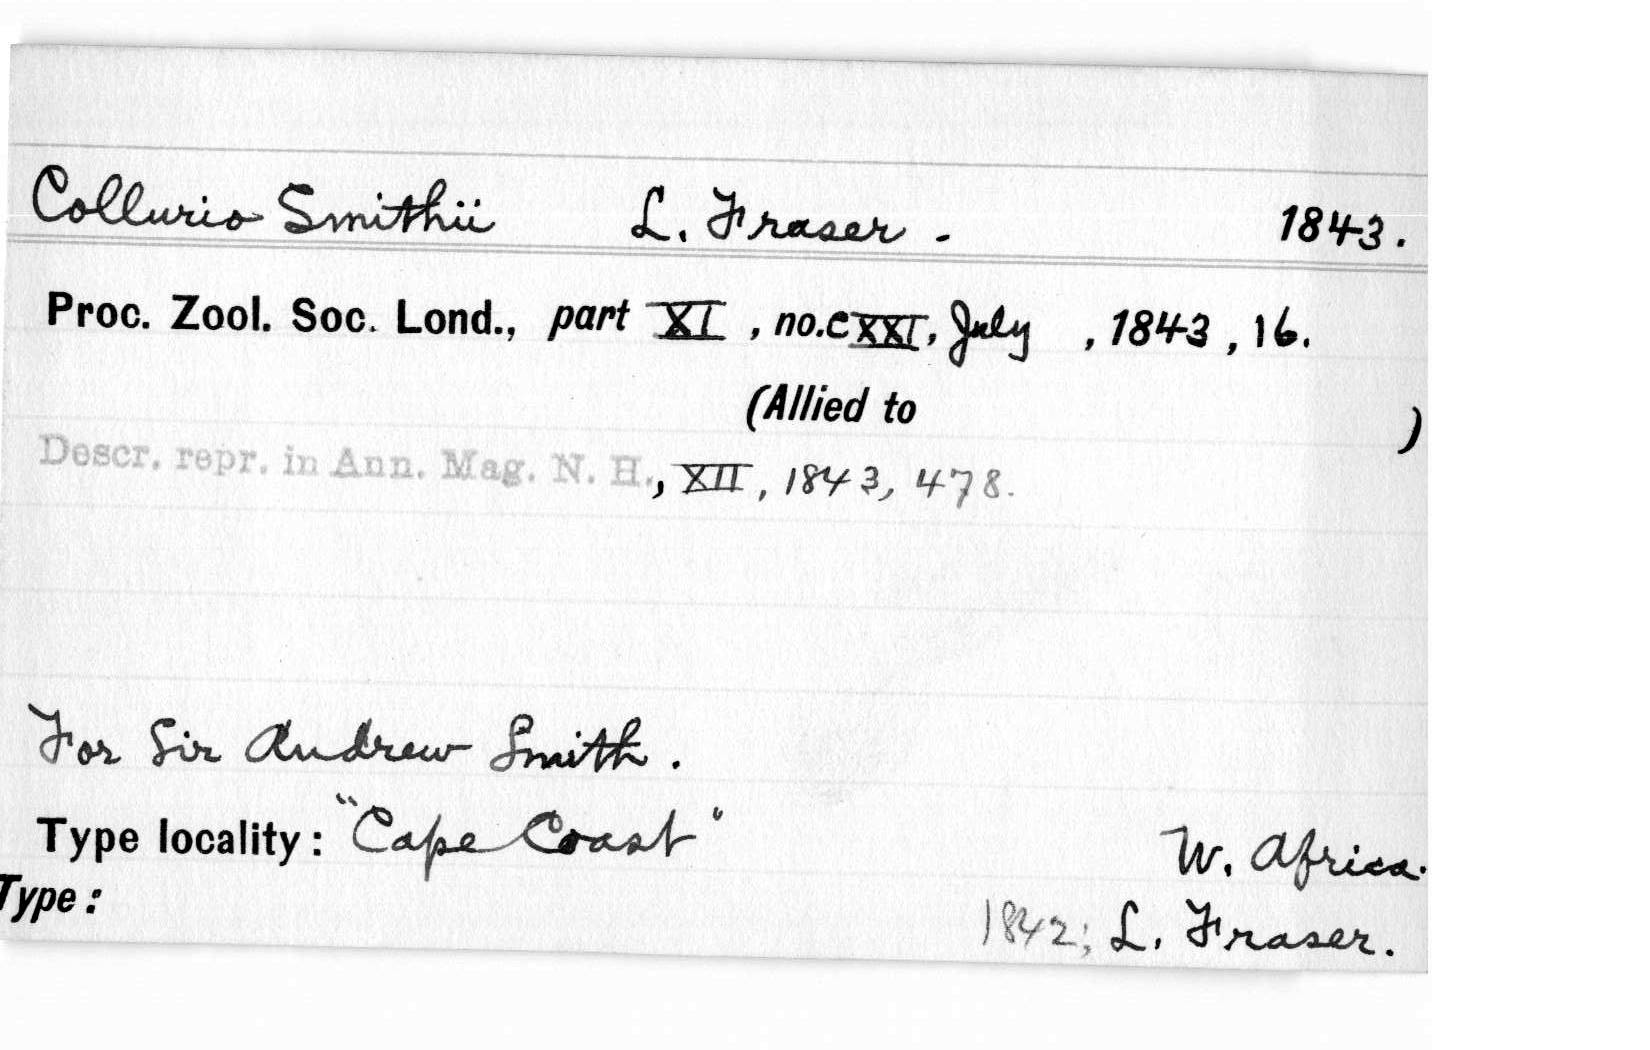 Collurio Smithii L. Fraser. 1843.
Proc. Zool. Soc. Lond., part XI, no. CXXI, July, 1843, 16.
(Allied to )
Descr. repr. in Ann. Mag. N. H., XII, 1843, 478.
For Sir Andrew Smith.
Type locality: "Cape Coast" W. Africa.
Type: 1842; L. Fraser.